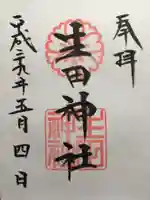 奉拝
生田神社
平成二九年五月四日